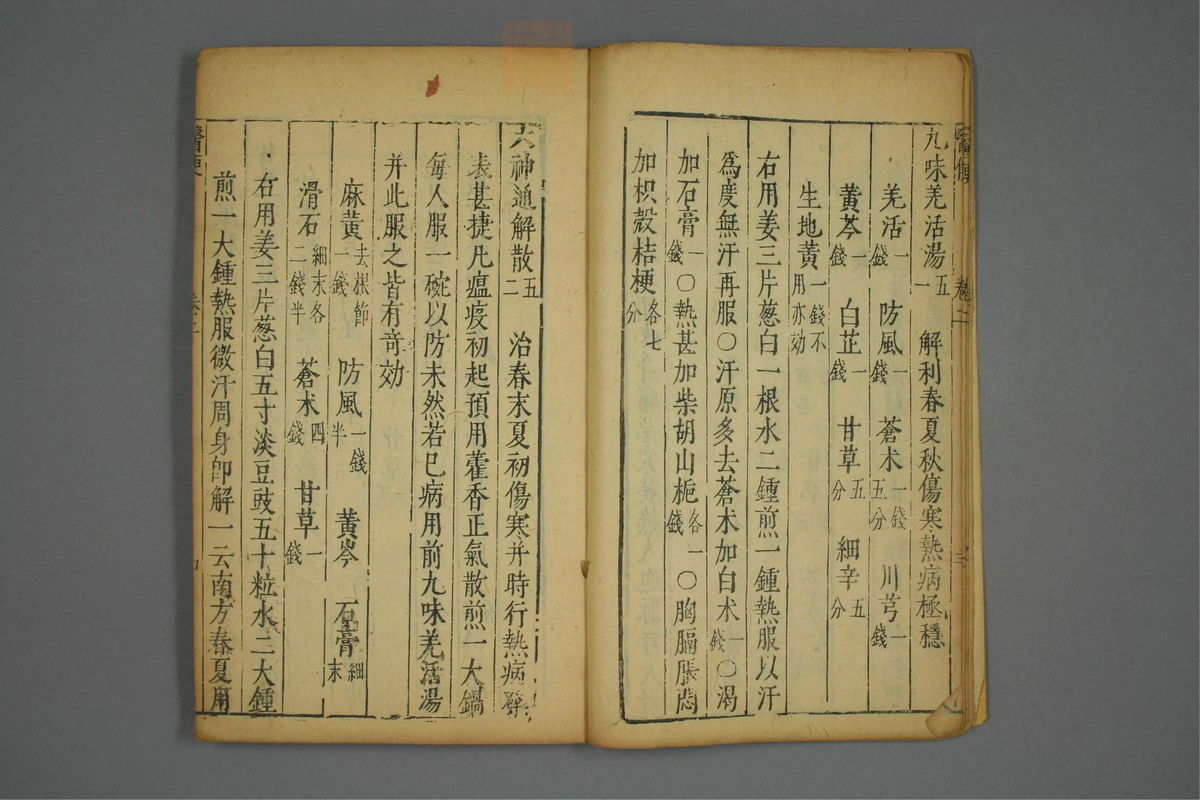 醫便 卷二
九味羌活湯五一 解利春夏秋傷寒熱病極穩
羌活一錢 防風一錢 蒼朮一錢五分 川芎一錢
黄芩一錢 白芷一錢 甘草五分 細辛五分
生地黄一錢不用亦効
右用姜三片葱白一根水二鍾煎一鍾熱服以汗
爲度無汗再服○汗原多去蒼朮加白朮一錢○渴
加石膏一錢○熱甚加柴胡山梔各一錢○胸膈脹悶
加枳殼桔梗各七分
六神通解散五二 治春末夏初傷寒并時行熱病發
表甚捷凡瘟疫初起預用藿香正氣散煎一大鍋
每人服一碗以防未然若巳病用前九味羌活湯
并此服之皆有竒効
麻黄去根節一錢 防風一錢半 黄芩 石膏細末
滑石細末各二錢半 蒼朮四錢 甘草一錢
右用姜三片葱白五寸淡豆豉五十粒水二大鍾
煎一大鍾熱服微汗周身卽解一云南方春夏用
醫便 卷二